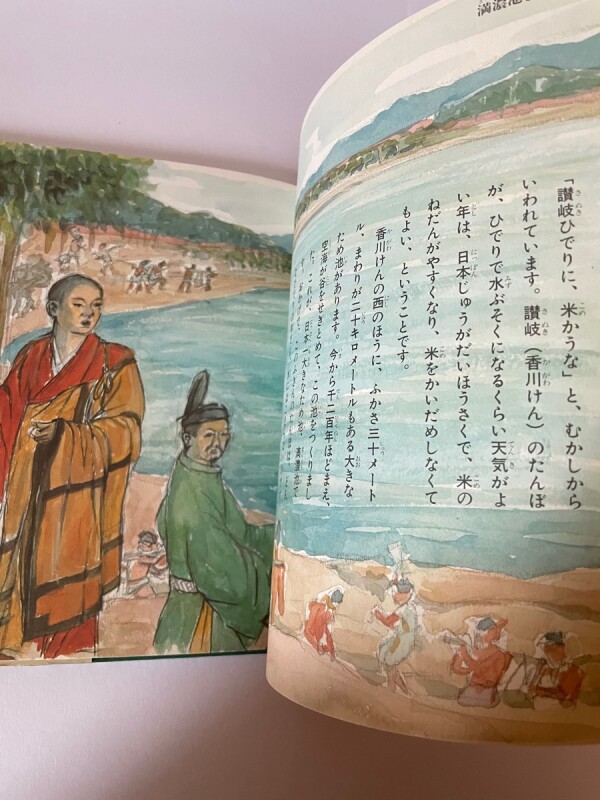 満濃池
「讃岐ひでりに、米かうな」と、むかしから
いわれています。讃岐（香川けん）のたんぼ
が、ひでりで水ぶそくになるくらい天気がよ
い年は、日本じゅうがだいほうさくで、米の
ねだんがやすくなり、米をかいだめしなくて
もよい、ということです。
香川けんの西のほうに、ふかさ三十メート
ル、まわりが二十キロメートルもある大きな
ため池があります。今から千二百年ほどまえ、
空海が谷をせきとめて、この池をつくりまし
た。これが、日本一大きなため池、満濃池で
す。